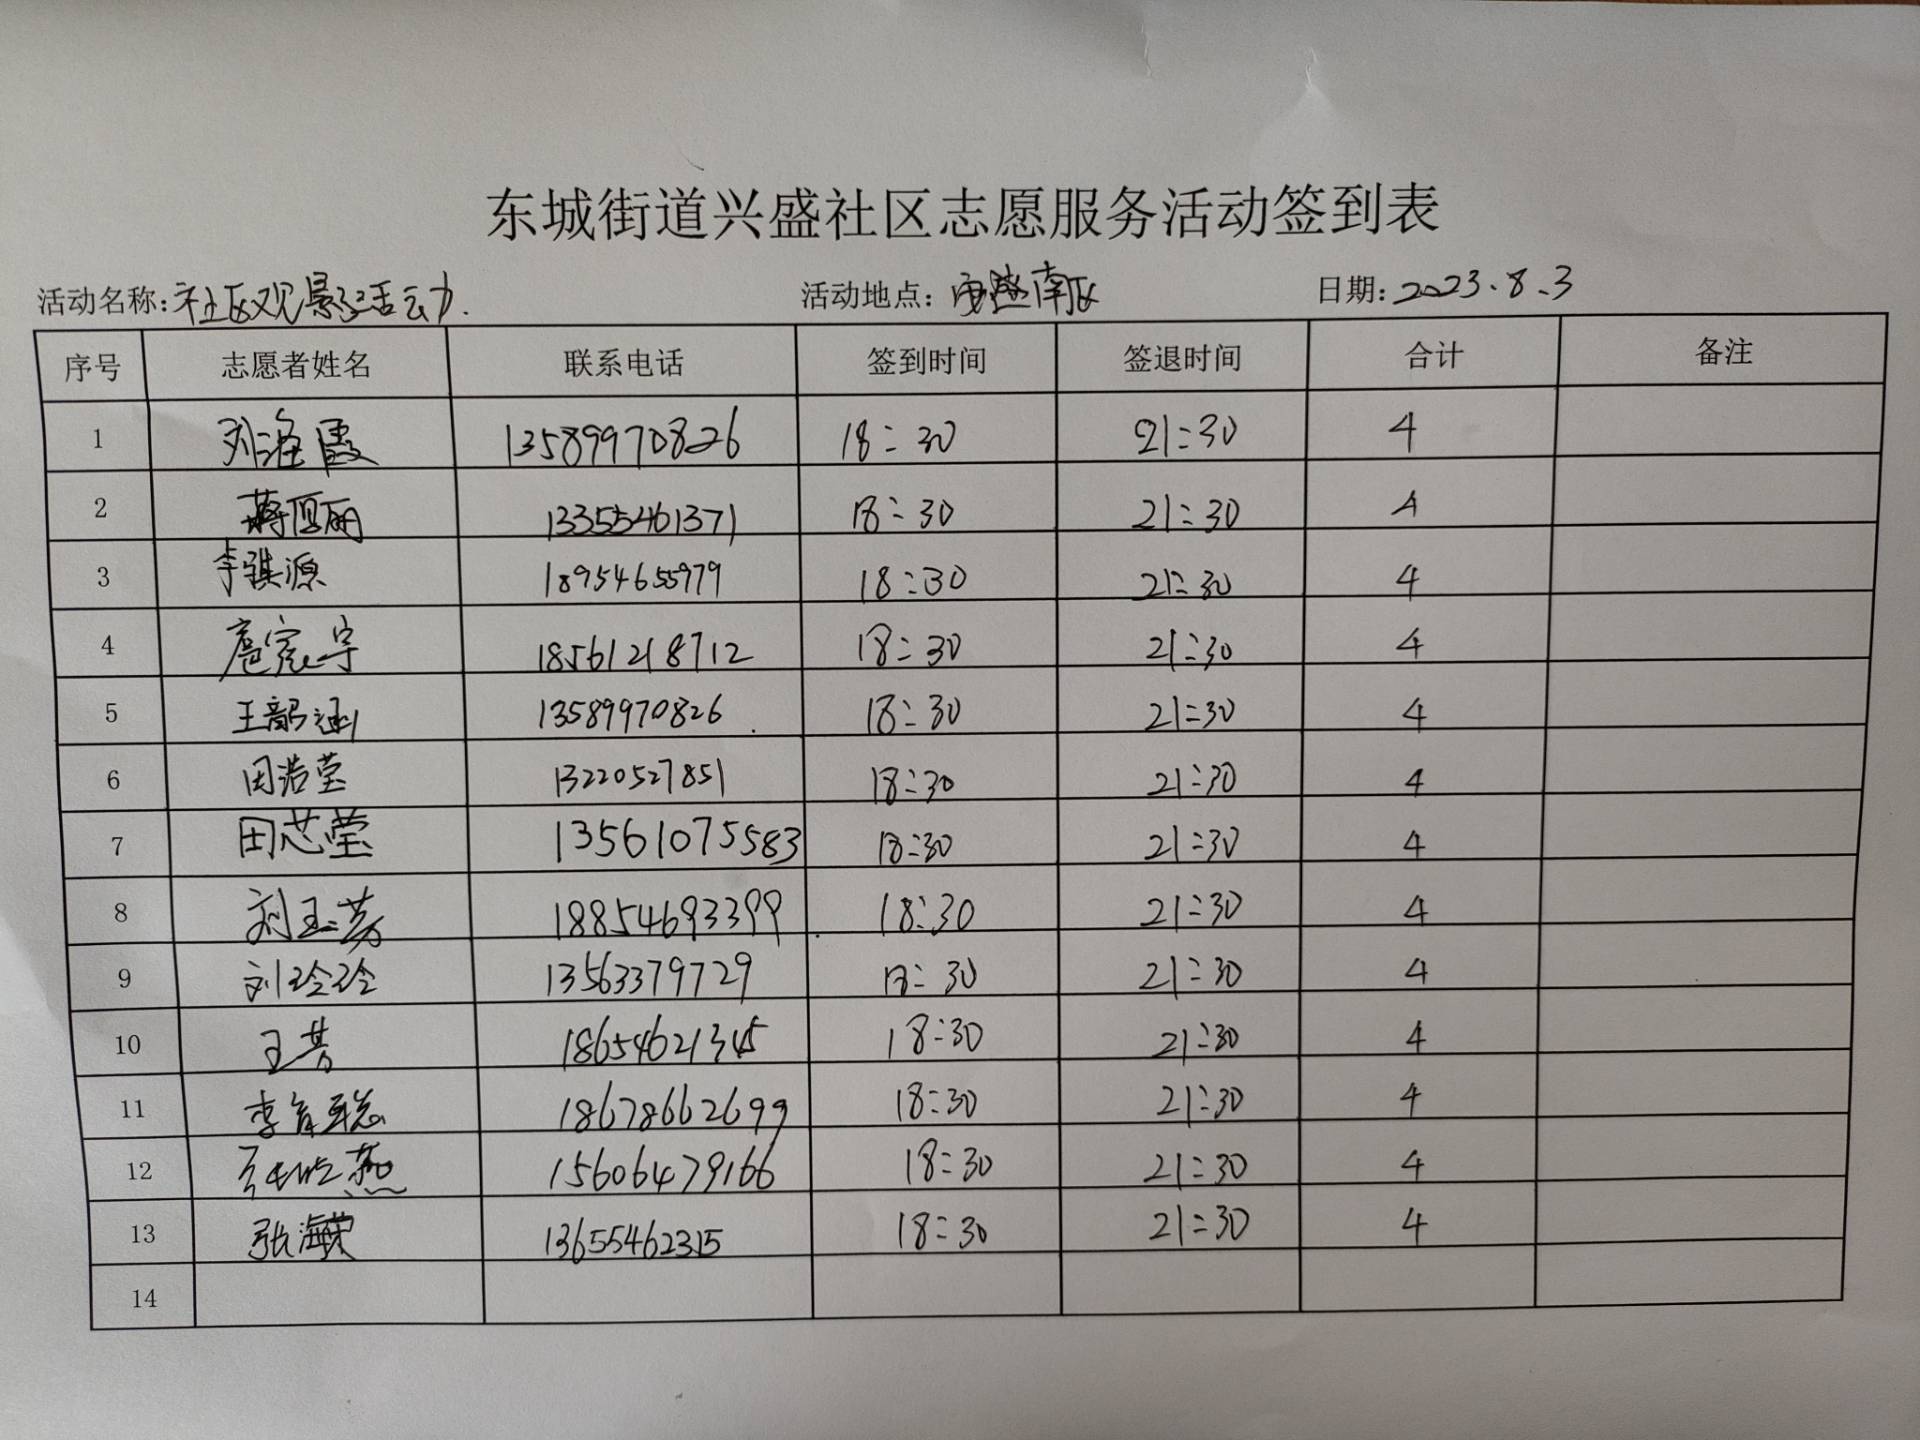 东城街道兴盛社区志愿服务活动签到表
活动名称:社区观影活动. 活动地点: 南区 日期:2023.8.3
序号 志愿者姓名 联系电话 签到时间 签退时间 合计 备注
1 刘海霞 13589970826 18:30 21:30 4
2 蒋 丽 13355461371 18:30 21:30 4
3 李骐源 18954655979 18:30 21:30 4
4 宇 18561218712 18:30 21:30 4
5 王韶涵 13589970826 18:30 21:30 4
6 田浩莹 13220527851 18:30 21:30 4
7 田芯莹 13561075583 18:30 21:30 4
8 刘玉芳 18854693399 18:30 21:30 4
9 刘玲玲 13563379729 18:30 21:30 4
10 王芳 18654621345 18:30 21:30 4
11 李 聪 18678662699 18:30 21:30 4
12 燕 15606479166 18:30 21:30 4
13 张海 13655462315 18:30 21:30 4
14